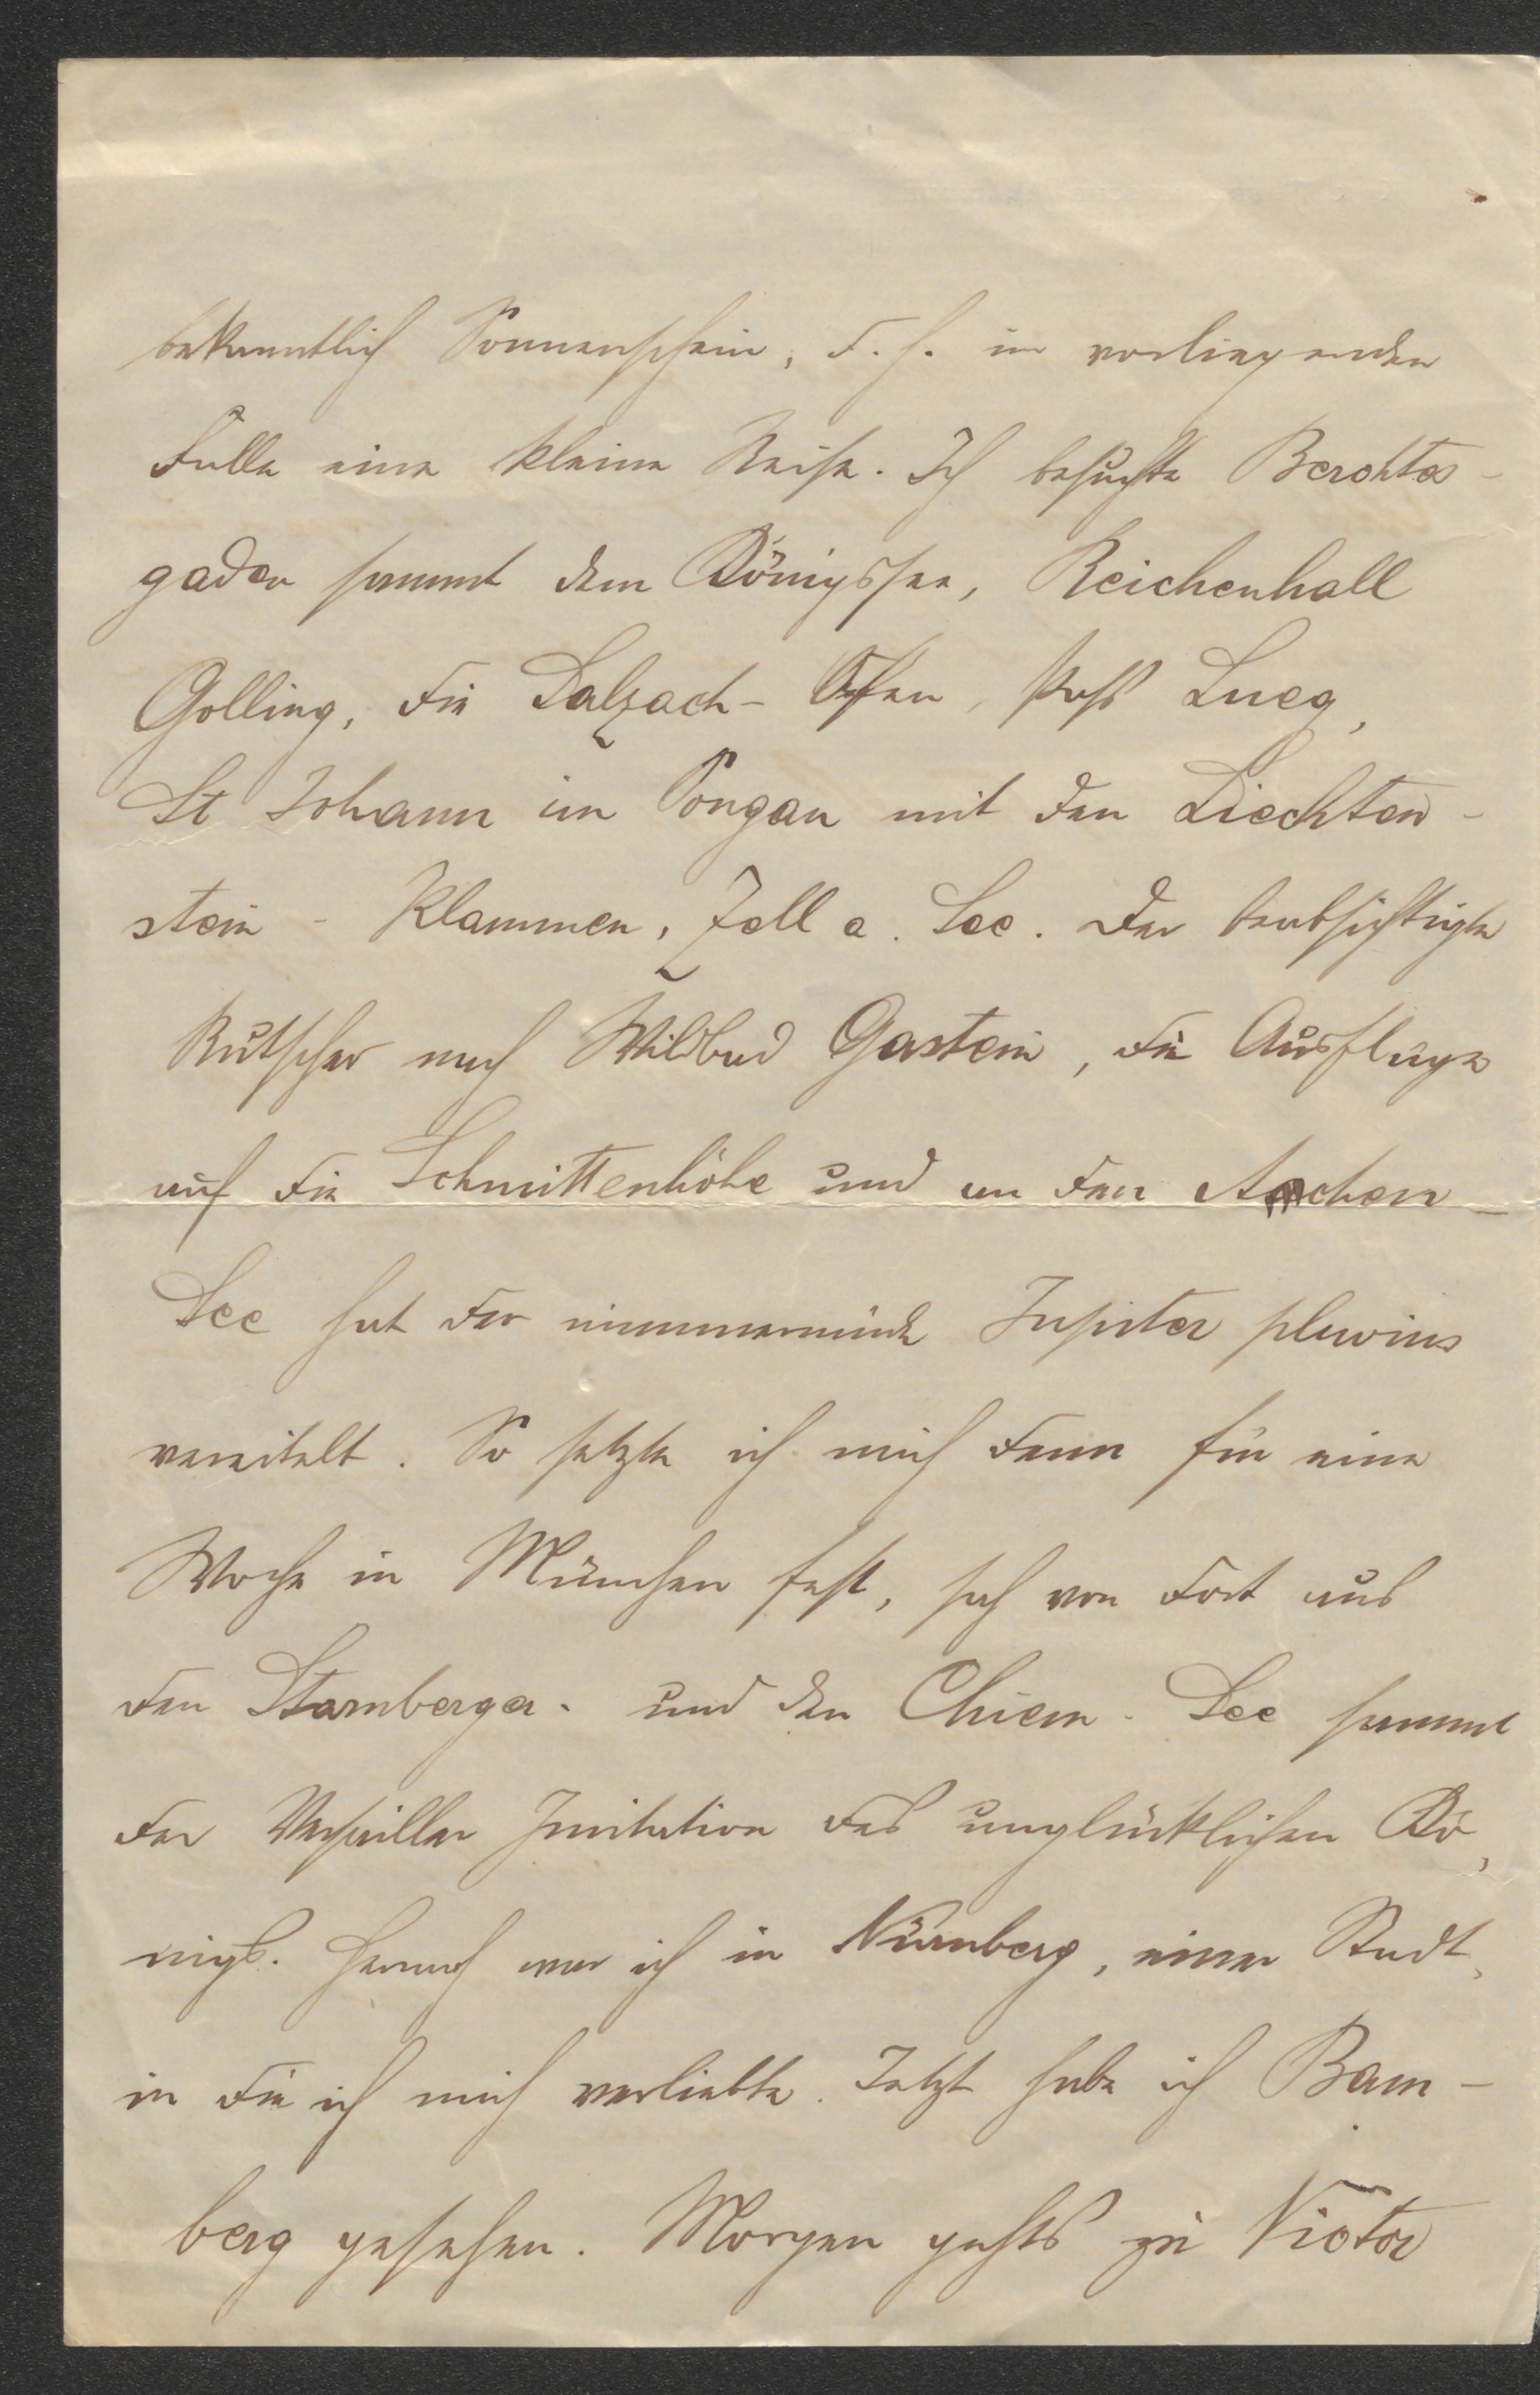 bekanntlich Sonnenschein, d. h. im vorliegenden
Falle eine kleine Reise. Ich besuchte Berchtes-
gaden sammt dem Königssee, Reichenhall
Golling, die Salzach-Öfen, Paß Lueg,
St Johann im Pongau mit den Liechten-
stein - Klammen, Zell a. See. Der beabsichtigte
Rutscher nach Wildbad Gastein, die Ausflüge
auf die Schmittenhöhe und an den Aachen-
See hat der nimmermüde Jupiter pluvius
vereitelt. So setzte ich mich denn für eine
Woche in München fest, sah von dort aus
den Starnberger- und den Chiem-See sammt
der Versailler Imitation des unglücklichen Kö-
nigs. Hernach war ich in Nürnberg, einer Stadt,
in die ich mich verliebte. Jetzt habe ich Bam-
berg gesehen. Morgen gehts zu Victor